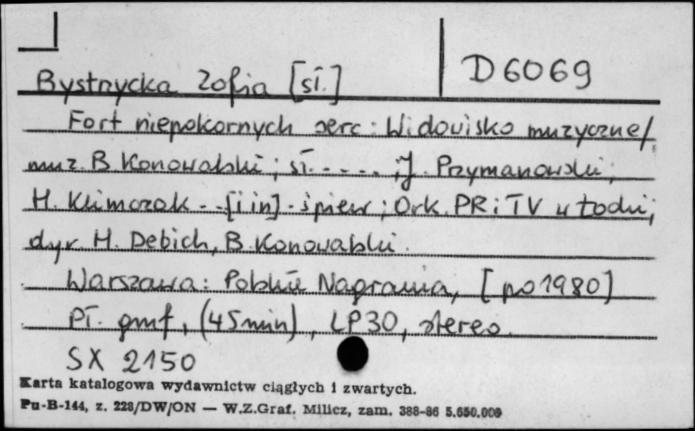 D 6069
Bystrycka Zofia [sł.]
Fort niepokornych serc : Widowisko muzyczne /
muz. B. Konowalski ; sł. - - - - ; J. Przymanowski ;
H. Klimczak - - [i in] - śpiew ; Ork. PR i TV w Łodzi ;
dyr H. Debich, B. Konowalski.
Warszawa : Polskie Nagrania, [po 1980]
Pł. gmf, (45 min), LP 30, stereo.
SX 2150
Karta katalogowa wydawnictw ciągłych i zwartych.
Pu-B-144, z. 228/DW/ON — W.Z.Graf. Milicz, zam. 388-86 5.650.000